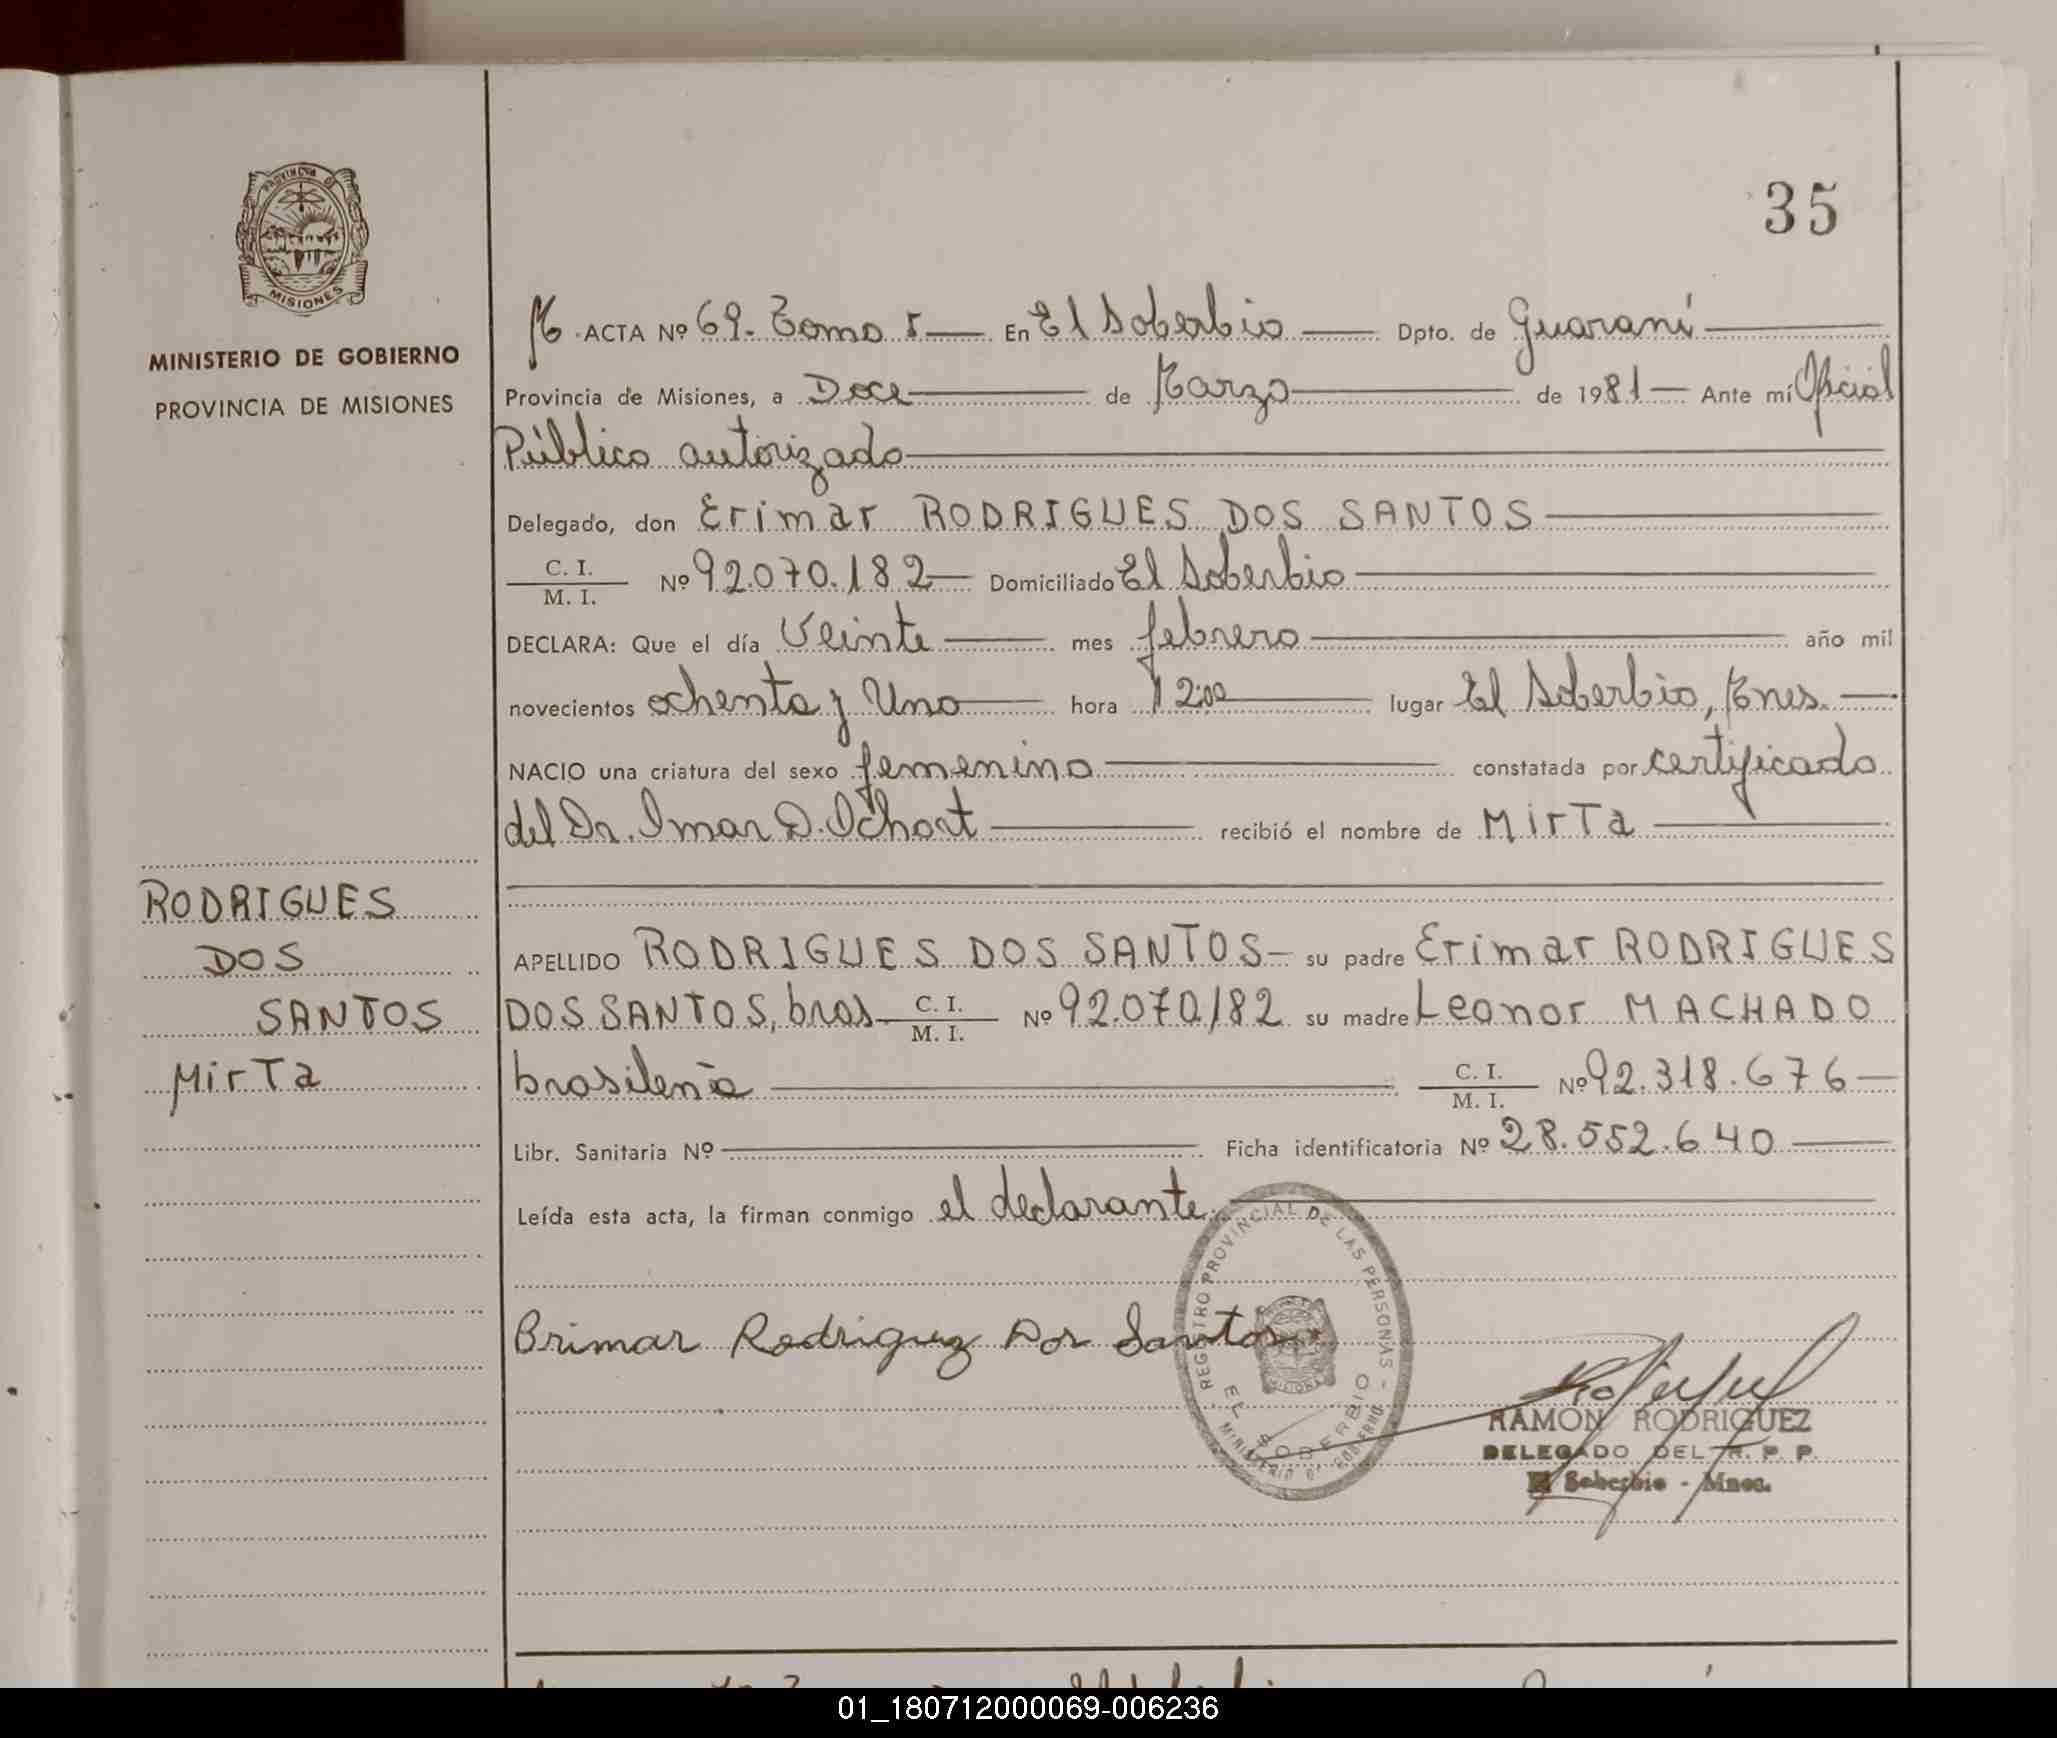 PROVINCIA DE
MISIONES
MINISTERIO DE GOBIERNO
PROVINCIA DE MISIONES
35
ACTA Nº 69. Tomo I En El Soberbio Dpto. de Guaraní
Provincia de Misiones, a Doce de Marzo de 1981 Ante mí Oficial
Público autorizado
Delegado, don Erimar RODRIGUES DOS SANTOS
C. I. / M. I. Nº 92.070.182 Domiciliado El Soberbio
DECLARA: Que el día Veinte mes febrero año mil
novecientos ochenta y Uno hora 12:00 lugar El Soberbio, Mnes.
NACIO una criatura del sexo femenino constatada por certificado
del Dr. Imar D. Ochort recibió el nombre de Mirta
RODRIGUES
DOS
SANTOS
Mirta
APELLIDO RODRIGUES DOS SANTOS su padre Erimar RODRIGUES
DOS SANTOS, bras C. I. / M. I. Nº 92.070.182 su madre Leonor MACHADO
brasileña C. I. / M. I. Nº 92.318.676
Libr. Sanitaria Nº Ficha identificatoria Nº 28.552.640
Leída esta acta, la firman conmigo el declarante
REGISTRO PROVINCIAL DE LAS PERSONAS -
EL SOBERBIO
MINISTERIO DE GOBIERNO
Erimar Rodriguez Dos Santos
RAMON RODRIGUEZ
DELEGADO DEL R. P. P.
El Soberbio - Mnes.
01_180712000069-006236